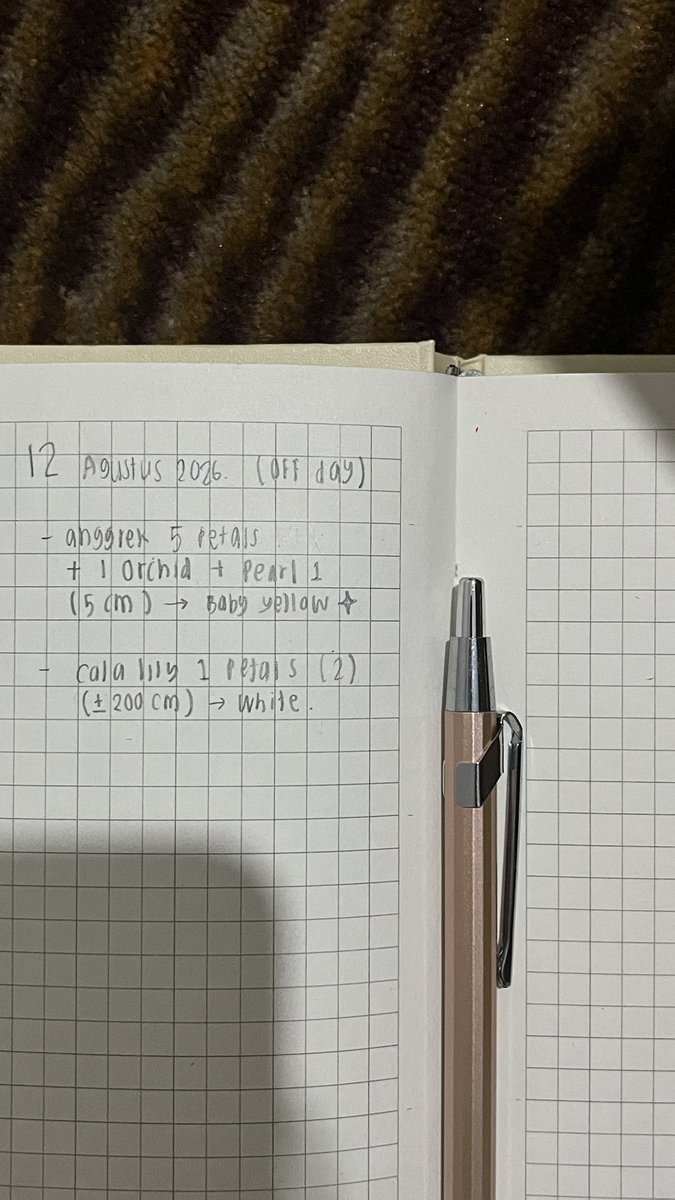 12 Agustus 2026. (OFF day)
- anggrek 5 petals
+ 1 Orchid + Pearl 1
(5 cm) → Baby yellow ✦
- cala lily 1 petals (2)
(± 200 cm) → White.